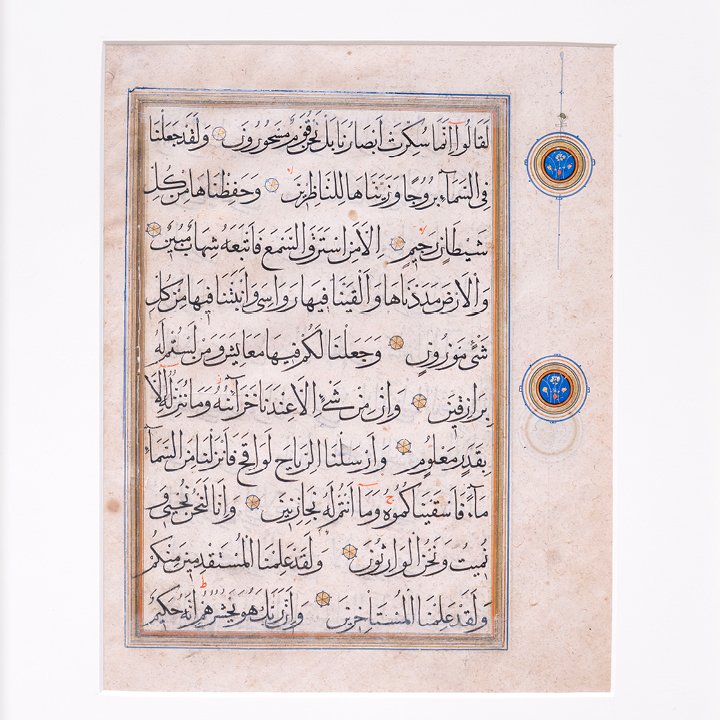 لَقَالُوا إِنَّمَا سُكِّرَتْ أَبْصَارُنَا بَلْ نَحْنُ قَوْمٌ مَسْحُورُونَ وَلَقَدْ جَعَلْنَا
فِي السَّمَآءِ بُرُوجًا وَزَيَّنَّاهَا لِلنَّاظِرِينَ وَحَفِظْنَاهَا مِنْ كُلِّ
شَيْطَانٍ رَجِيمٍ إِلَّا مَنِ اسْتَرَقَ السَّمْعَ فَأَتْبَعَهُ شِهَابٌ مُبِينٌ
وَالْأَرْضَ مَدَدْنَاهَا وَأَلْقَيْنَا فِيهَا رَوَاسِيَ وَأَنْبَتْنَا فِيهَا مِنْ كُلِّ
شَيْءٍ مَوْزُونٍ وَجَعَلْنَا لَكُمْ فِيهَا مَعَايِشَ وَمَنْ لَسْتُمْ لَهُ
بِرَازِقِينَ وَإِنْ مِنْ شَيْءٍ إِلَّا عِنْدَنَا خَزَآئِنُهُ وَمَا نُنَزِّلُهُ إِلَّا
بِقَدَرٍ مَعْلُومٍ وَأَرْسَلْنَا الرِّيَاحَ لَوَاقِحَ فَأَنْزَلْنَا مِنَ السَّمَآءِ
مَآءً فَأَسْقَيْنَاكُمُوهُ وَمَآ أَنْتُمْ لَهُ بِخَازِنِينَ وَإِنَّا لَنَحْنُ نُحْيِي وَ
نُمِيتُ وَنَحْنُ الْوَارِثُونَ وَلَقَدْ عَلِمْنَا الْمُسْتَقْدِمِينَ مِنْكُمْ
وَلَقَدْ عَلِمْنَا الْمُسْتَأْخِرِينَ وَإِنَّ رَبَّكَ هُوَ يَحْشُرُهُمْ إِنَّهُ حَكِيمٌ